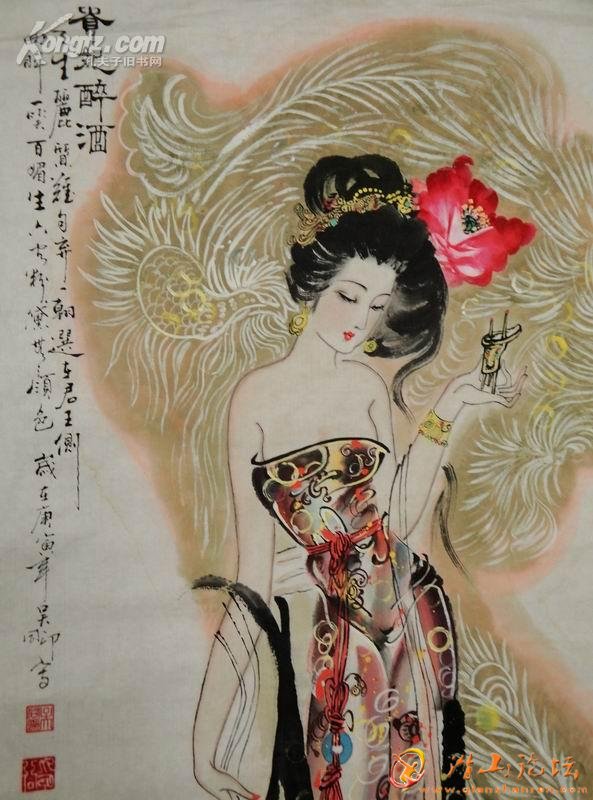 貴妃醉酒
天生麗質難自弃一朝選在君王側
回眸一笑百媚生六宮粉黛無顏色 歲在庚寅年吳寫
KONGFZ.COM
孔夫子旧书网
潜山论坛
www.qianshanren.com